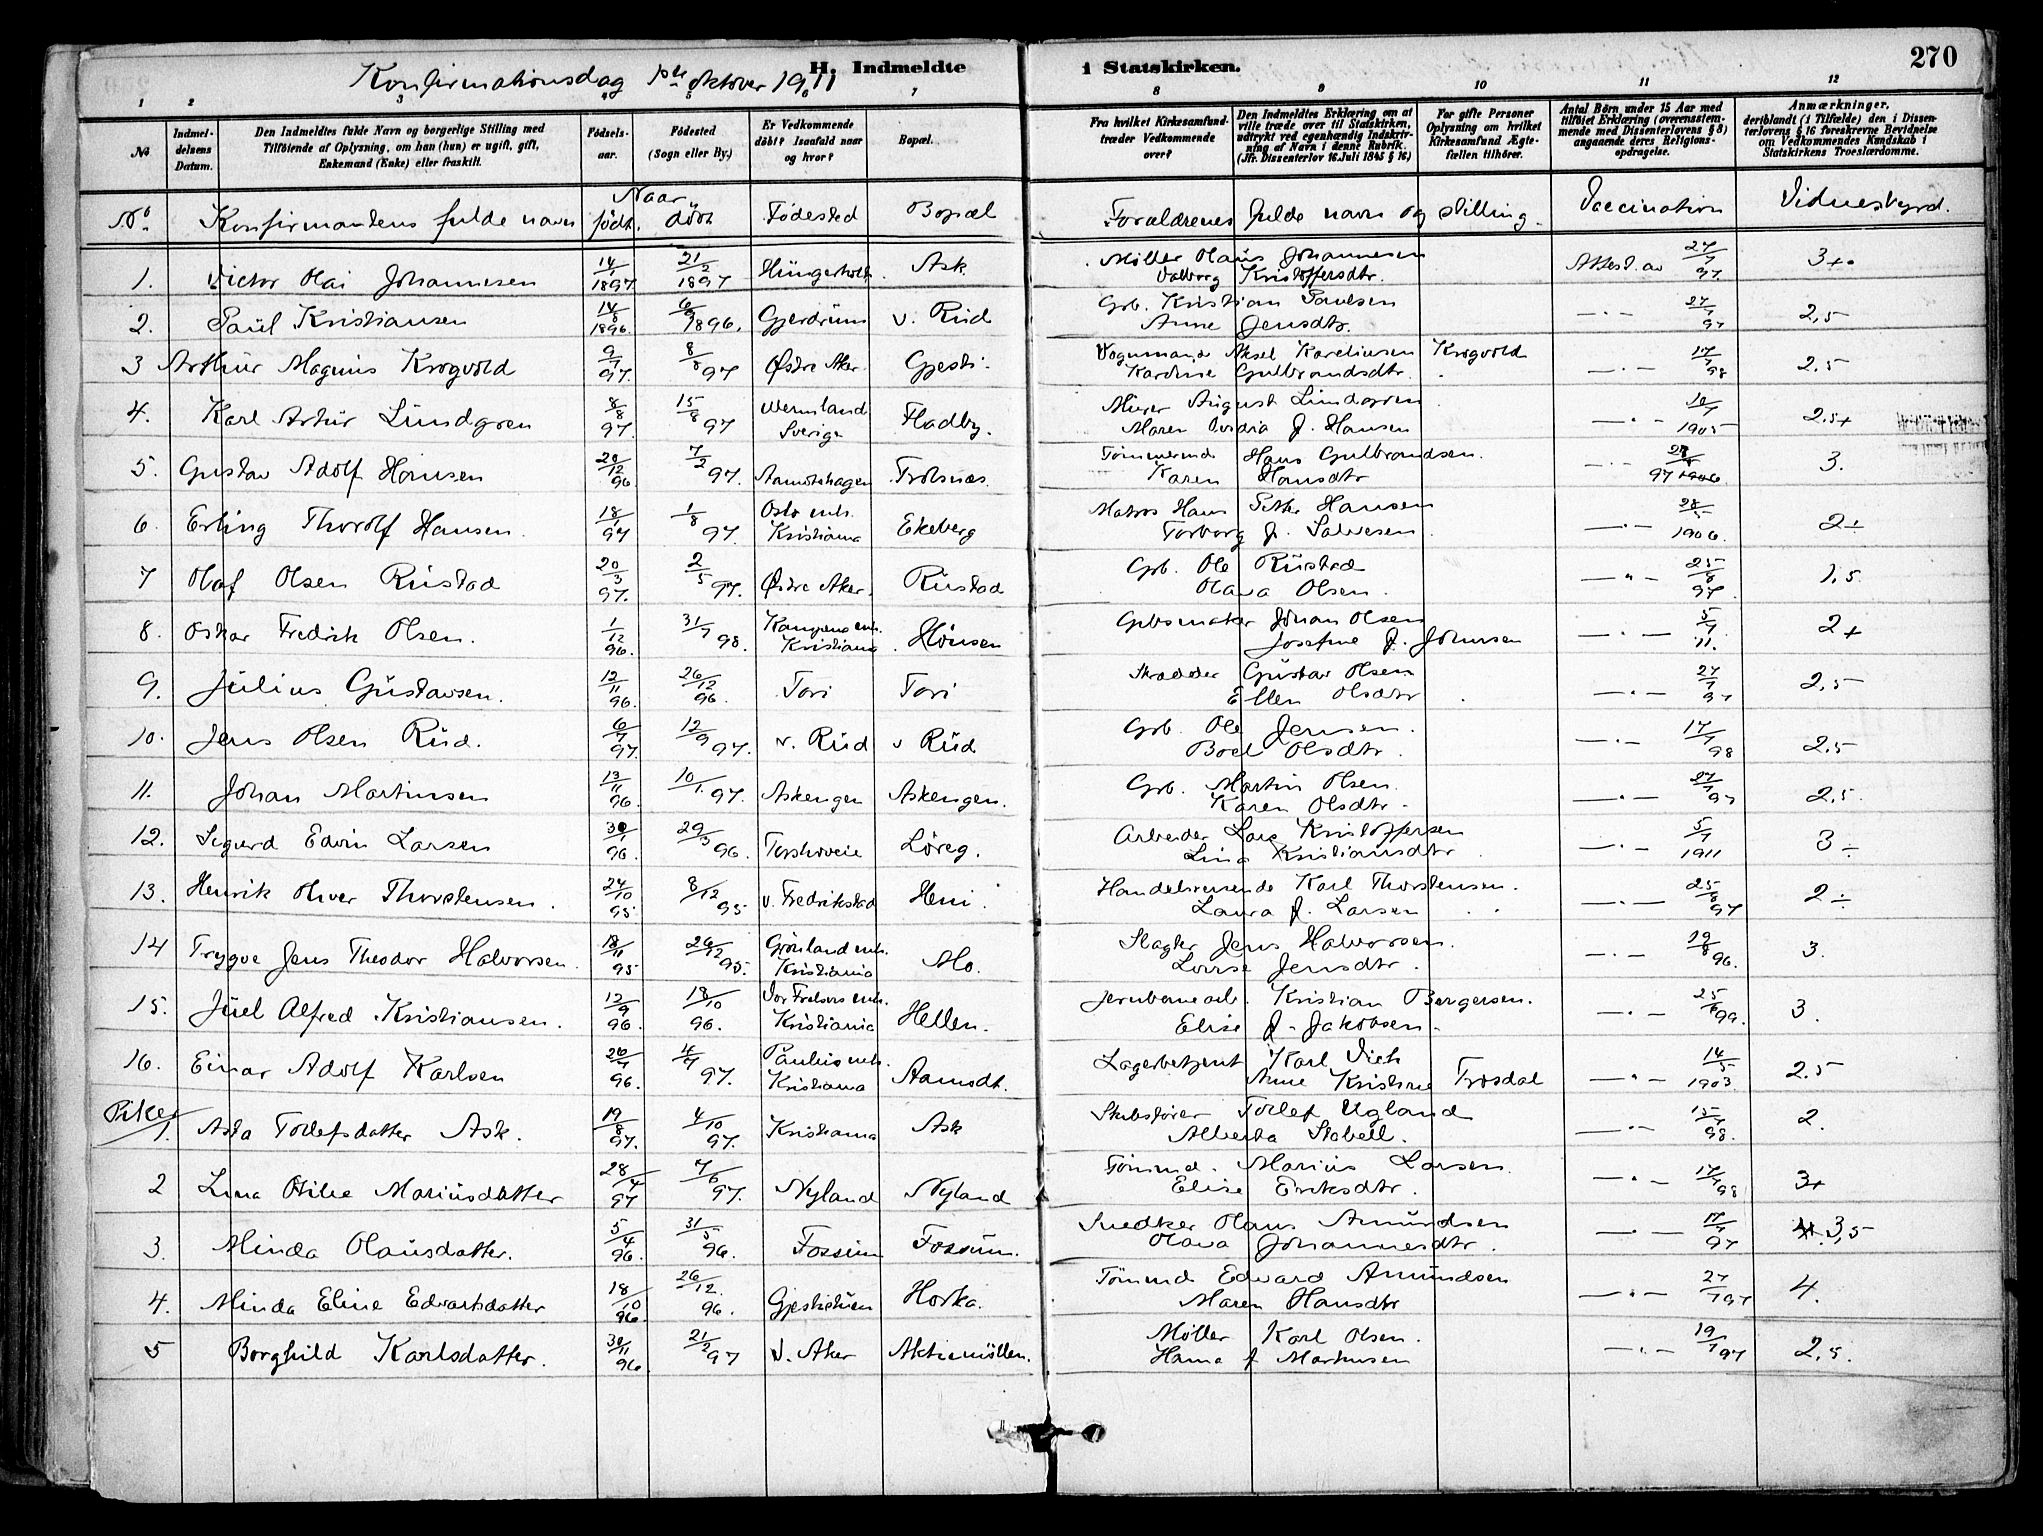 270
Konfirmationsdag 1ste oktober 1911
H. Indmeldte i Statskirken.
1 2 3 4 5 6 7 8 9 10 11 12
No
Indmel-
delsens
Datum.
Den Indmeldtes fulde Navn og borgerlige Stilling med
Tilföiende af Oplysning, om han (hun) er ugift, gift,
Enkemand (Enke) eller fraskilt.
Födsels-
aar.
Födested
(Sogn eller By.)
Er Vedkommende
döbt? Isaafald naar
og hvor?
Bopæl.
Fra hvilket Kirkesamfund
træder Vedkommende
over?
Den Indmeldtes Erklæring om at
ville træde over til Statskirken,
udtrykt ved egenhændig Indskriv-
ning af Navn i denne Rubrik.
(Jfr. Dissenterlov 16. Juli 1845 § 16)
For gifte Personer
Oplysning om hvilket
Kirkesamfund Ægte-
fællen tilhörer.
Antal Börn under 15 Aar med
tilföiet Erklæring (overensstem-
mende med Dissenterlovens § 8)
angaaende deres Religions-
opdragelse.
Anmærkninger,
deriblandt (i Tilfælde) den i Dissen-
terlovens § 16 foreskrevne Bevidnelse
om Vedkommendes Kundskab i
Statskirkens Troeslærdomme.
No. Konfirmantens fulde navn Naar født. döbt Födested Bopæl Forældrenes fulde navn og stilling. Vaccination Vidnesbyrd.
1. Victor Olai Johannesen 14/1 1897 21/2 1897 Hungerholt. Ask. Møller Olaus Johannesen Attest. av 27/7 97. 3+.
Valborg Kristoffersdtr.
2. Paul Kristiansen 14/8 1896. 6/9 1896. Gjerdrum v. Rud Grb. Kristian Paulsen —.— 27/7 97 2,5
Anne Jensdtr.
3 Arthur Magnus Krogvold 9/7 97. 8/8 97 Østre Aker. Gjesti. Vognmand Aksel Kareliusen Krogvold —.— 17/7 98 2.5
Kardine Gulbrandsdtr.
4. Karl Artur Lundgren 8/8 97. 15/8 97 Wermland Sverige Fladby. Murer August Lundgren —.— 10/7 1905 2.5+
Maren Ovidia f. Hansen
5. Gustav Adolf Hansen 20/12 96 7/2 97. Aamodthagen Trosnæs. Tømmermd Hans Gulbrandsen. —.— 97 3.
Karen Hansdtr
6. Erling Thorolf Hansen. 18/1 97 1/8 97. Oslo mh. Kristiania Ekeberg Matros Hans Petter Hansen —.— 1906. 2÷
Torborg f. Salvesen.
7 Olaf Olsen Rustad 20/3 97. 2/5 97. Østre Aker. Rustad Grb. Ole Rustad —.— 25/6 97 1,5.
Olava Olsen.
8. Oskar Fredrik Olsen. 1/12 96. 31/7 98. Kampens mh. Kristiania Hønsen Gibsmaker Johan Olsen —.— 5/7 11. 2+
Josefine f. Johnsen
9. Julius Gustavsen. 12/11 96. 26/12 96. Tori Tori Skrædder Gustav Olsen —.— 27/7 97 2,5
Ellen Olsdtr.
10. Jens Olsen Rud. 6/7 97. 12/9 97. v. Rud v Rud. Grb. Ole Jensen. —.— 17/7 98 2.5
Boel Olsdtr.
11. Johan Martinsen 13/11 96. 10/1 97. Askengen Askengen. Grb. Martin Olsen. —.— 27/7 97 2,5.
Karen Olsdtr.
12. Sigurd Edvin Larsen 30/1 96. 29/3 96. Torshoveie Löreg. Arbeider Lars Kristoffersen —.— 5/7 1911 3÷
Lina Kristiansdtr.
13. Henrik Oliver Thorstensen. 24/10 95. 8/12 95 v. Fredrikstad Heni. Handelsreisende Karl Thorstensen. —.— 25/6 97 2÷
Laura f. Larsen
14 Trygve Jens Theodor Halvorsen. 18/11 95 26/12 95. Grønland mh. Kristiania Mo. Slagter Jens Halvorsen. —.— 19/8 96. 3.
Lovise Jensdtr.
15. Juel Alfred Kristiansen. 12/9 96. 18/10 96. Vor Frelsers mh. Kristiania Hellen. Jernbanearb. Kristian Bergersen. —.— 25/6 99. 3.
Elise f. Jakobsen.
16. Einar Adolf Karlsen 26/7 96. 4/7 97. Paulus mh. Kristiania Aamodt. Lagerbetjent Karl Vich —.— 14/5 1903. 2.5
Anne Kristine Trosdal
Piker
1. Asta Tollefsdatter Ask. 19/8 97. 4/10 97. Kristiania Ask Skibsfører Tollef Ugland —.— 15/7 98. 2.
Alberta Stabell.
2 Lina Otilie Mariusdatter 28/4 97 7/6 97. Nyland Nyland Tømmd. Marius Larsen. —.— 17/7 98 3+
Elise Eriksdtr.
3. Minda Olausdatter. 5/4 96. 31/5 96. Fossum Fossum. Snedker Olaus Amundsen —.— 17/7 97 3,5
Olava Johannesdtr.
4. Minda Eline Edvartsdatter 18/10 96. 26/12. 96. Gjestistuen Horka. Tömmd Edvard Amundsen —.— 27/7 97 4.
Maren Hansdtr
5 Borghild Karlsdatter. 30/11 96. 21/2 97 V. Aker Aktiemöllen. Møller Karl Olsen. —.— 19/7 97 2,5.
Hanna f Martinsen